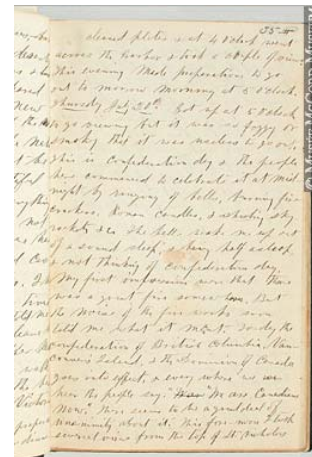 35
cleaned plates & at 4 O'clock went
across the harbor & took a couple of views.
This evening Made preparations to go
out to morrow morning at 5 O'clock.
Thursday July 20th. Got up at 5 O'clock
to go viewing but it was so foggy or
smoky that it was useless to go out.
This is Confederation day & the people
here commenced to celebrate it at mid
night by ringing of bells, burning fire
crackers, Roman candles, & shooting sky
rockets &c. The bells woke me up out
of a sound sleep, & being half asleep
& not thinking of confederation day.
My first impressions were that there
was a great fire somewhere. But
the noise of the fire works soon
told me what it meant. To-day the
confederation of British Columbia, Van-
couver's Island, & the Dominion of Canada
goes into effect, & every where we can
hear the people say. "We are Canadians
Now." There seems to be a great deal of
unanimity about it. This fore-noon I took
several views from the top of St. Nicholas
© McCord Museum